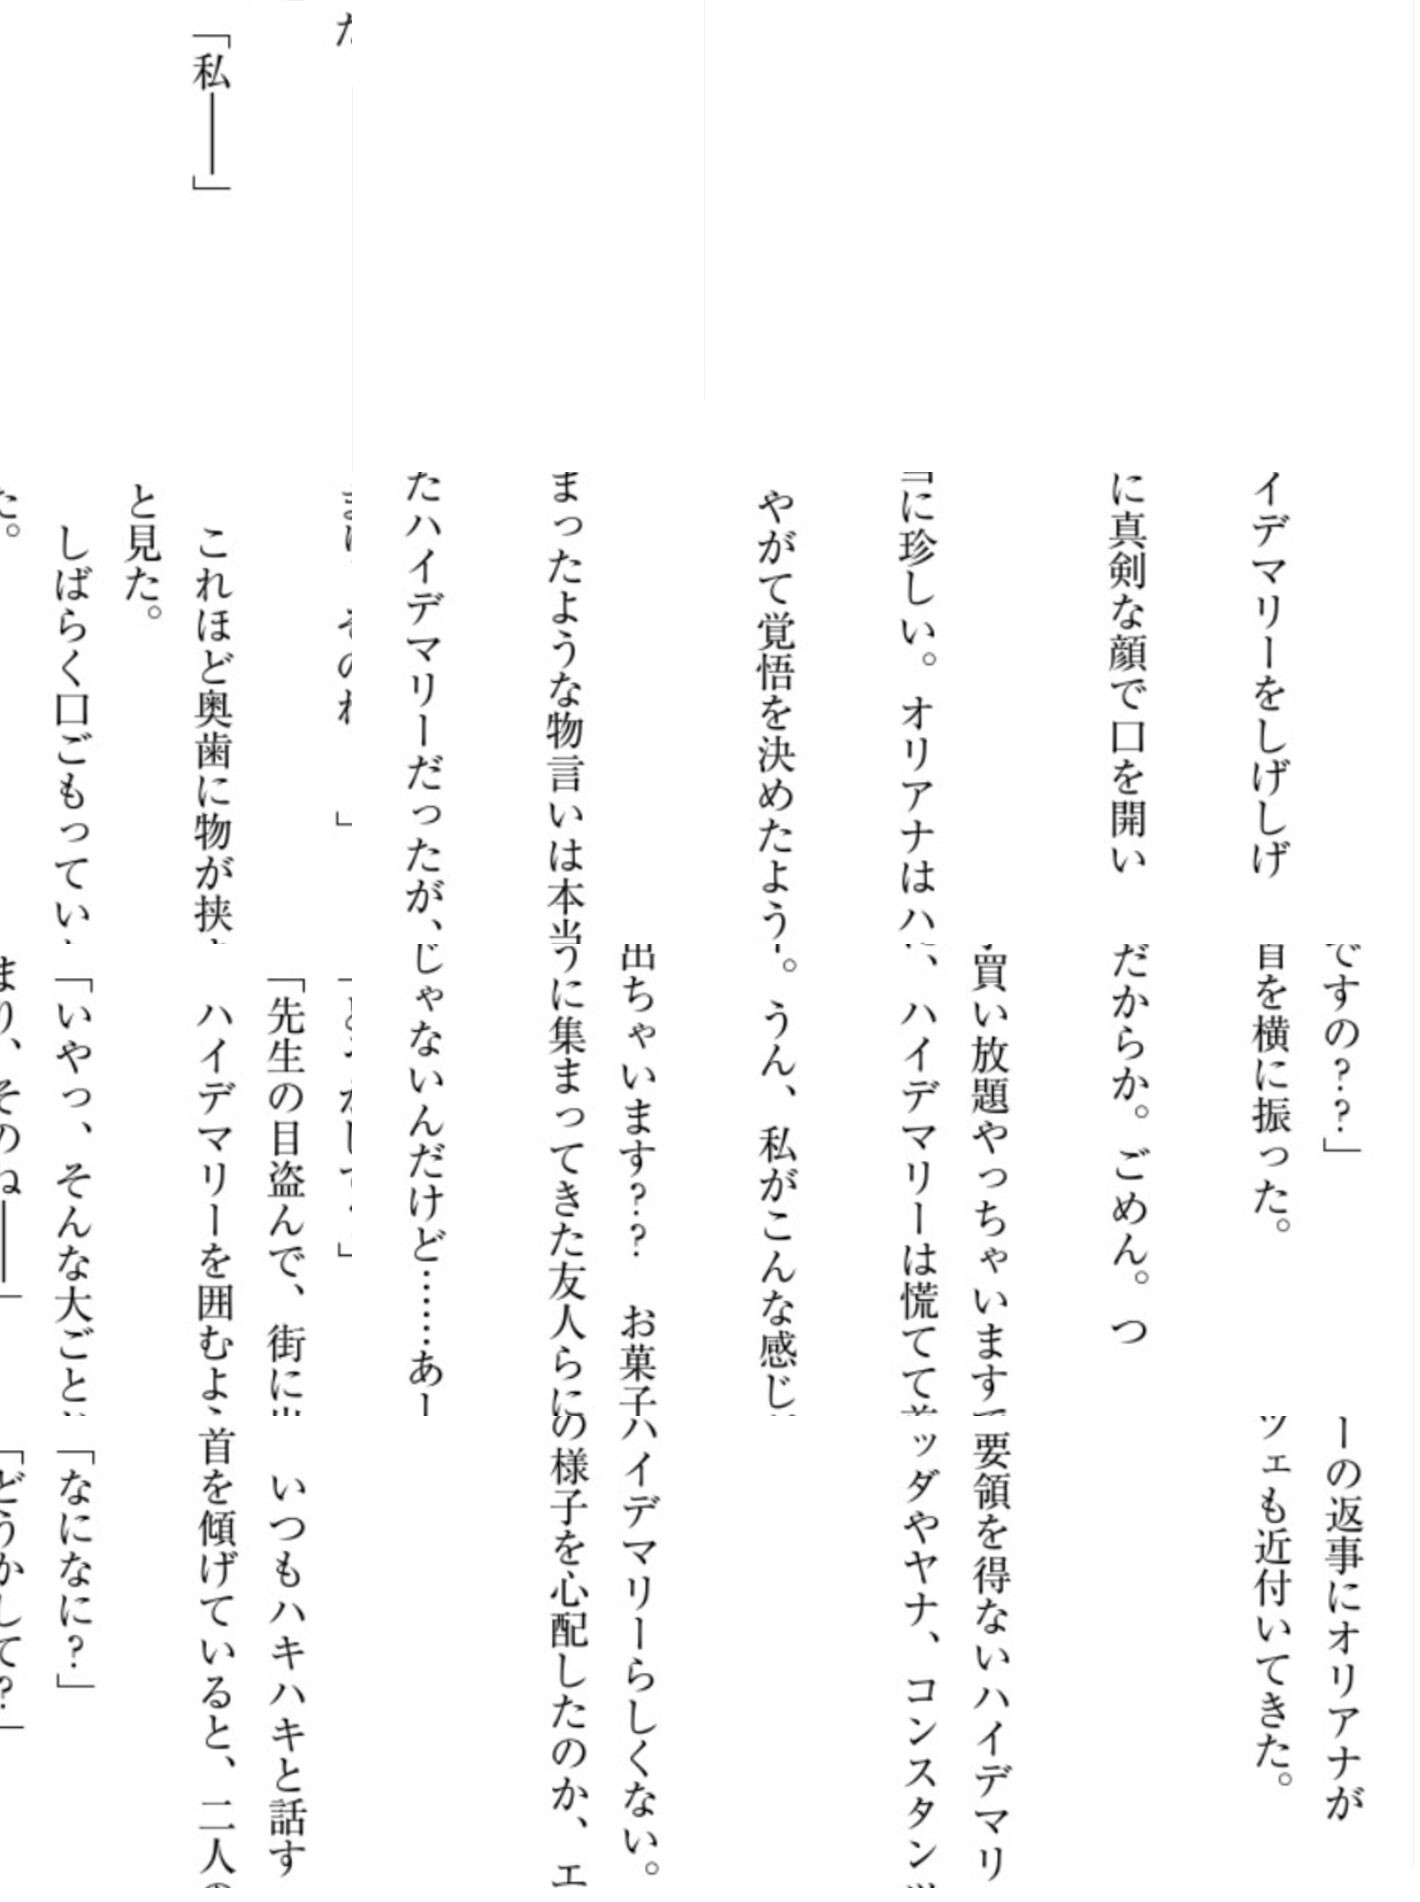 「私――」
イデマリーをしげしげ
に真剣な顔で口を開い
に珍しい。オリアナはハ
やがて覚悟を決めたよう
まったような物言いは本当
たハイデマリーだったが、
これほど奥歯に物が挟
と見た。
しばらく口ごもってい
た。
ですの？？」
首を横に振った。
だからか。ごめん。つ
買い放題やっちゃいます
、ハイデマリーは慌てて
。うん、私がこんな感じ
出ちゃいます？？　お菓子
うに集まってきた友人らに
じゃないんだけど……あー
「先生の目盗んで、街に
ハイデマリーを囲むよ
「いやっ、そんな大ごと
まり、そのね――」
ーの返事にオリアナが
ツェも近付いてきた。
要領を得ないハイデマリ
ッダやヤナ、コンスタン
ハイデマリーらしくない。
の様子を心配したのか、エ
いつもハキハキと話す
首を傾げていると、二人の
「なになに？」
「どうかして？」